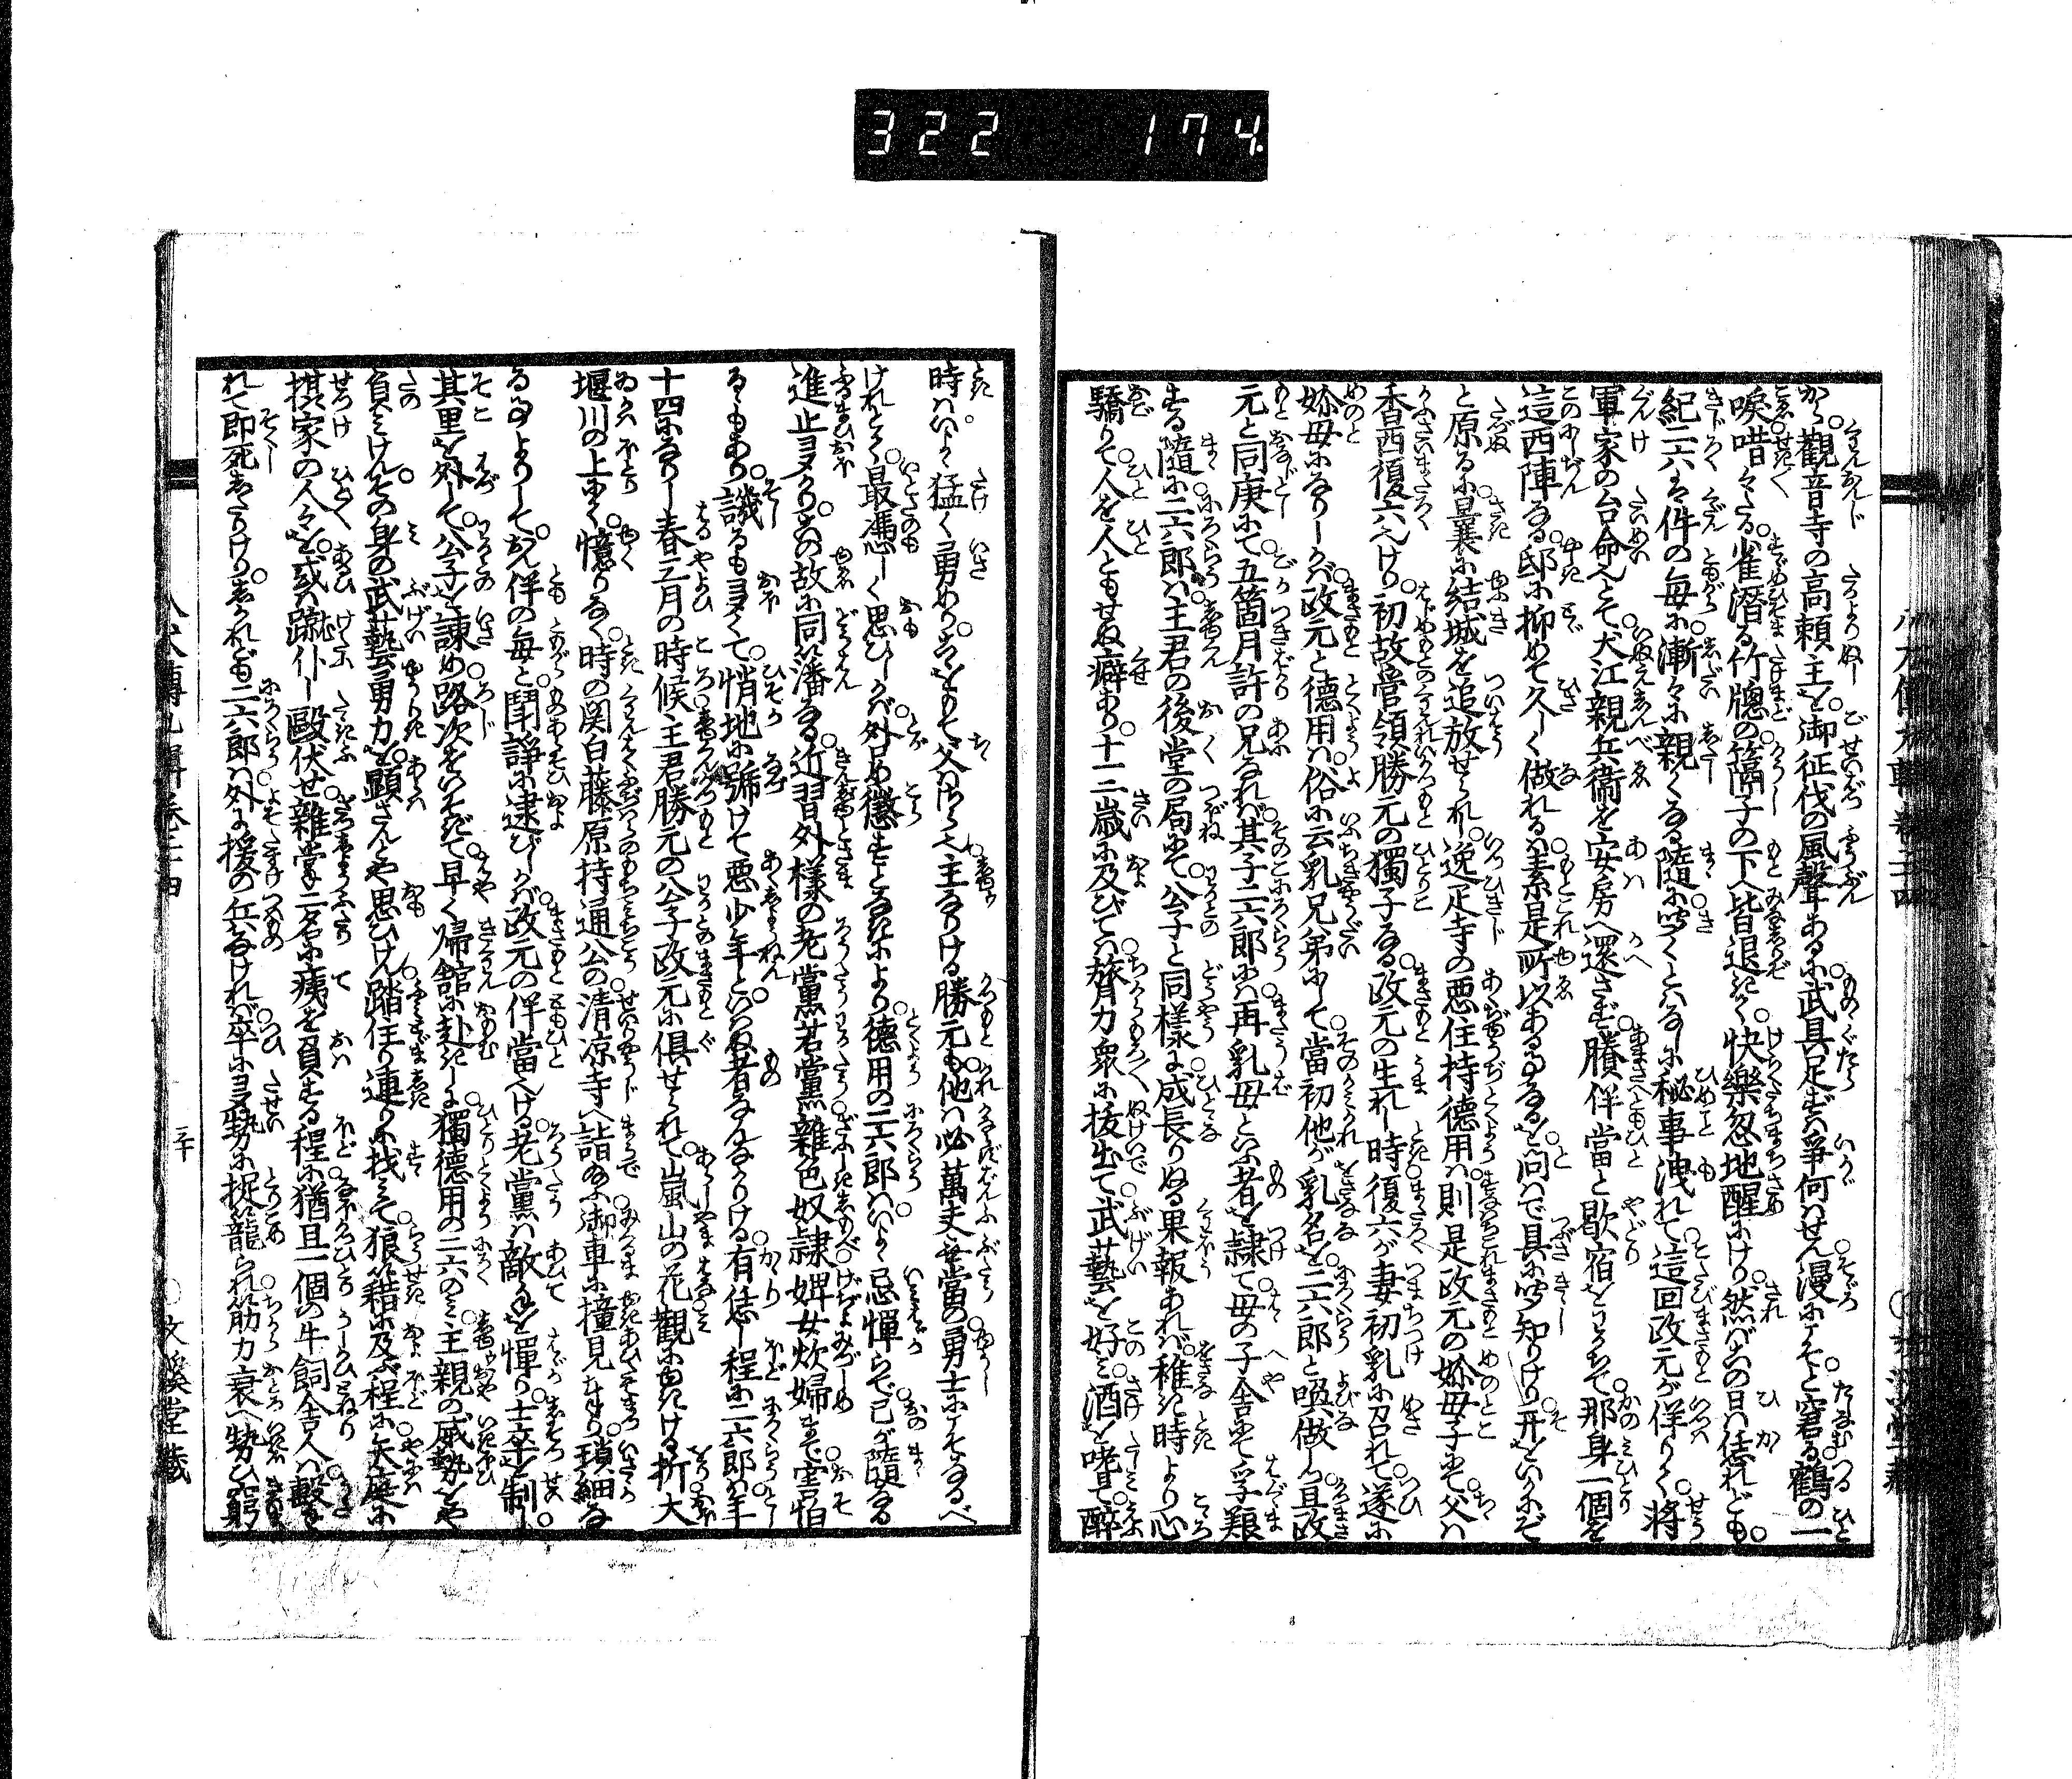 322 174
から觀音寺の高頼主を御征伐の風聲あるに武具足ずば爭何はせん漫にすそと窘る鶴の一
唳喈々たる雀潜る竹牕の篩子の下へ皆退きつ快樂忽地醒にけり然ばその日は恁れども
紀二六は件の毎に漸々に親くなる隨に聞くとはなしに秘事洩れて這回政元が佯りて將
軍家の台命へとて犬江親兵衞を安房へ還さず賸伴當と歇宿をわかちて那身一個を
這西陣なる邸に抑めて久しく做れるは素是所以ある事なるを問はで具に聞知りけり开をいかにぞ
と原るに曩に結城を追放せられし逸疋寺の悪住持德用は則是政元の嫲母子にて父は
香西復六へけり初故管領勝元の獨子なる政元の生れし時復六が妻初乳に召れて遂に
嫲母になりしかば政元と德用は俗に云乳兄弟にて當初他が乳名を二六郎と喚做し且政
元と同庚にて五箇月許の兄なれば其子二六郎には再乳母といふ者を隷て母の子舎にて孚艱
する隨に二六郎は主君の後堂の局にて公子と同樣に成長りぬる果報あれば稚き時より心
驕りて人を人ともせぬ癖あり十二三歳に及びては膂力衆に抜出て武藝を好み酒を嗜て醉
時はいよゝ猛く勇めりこをもて父はさらへ主なりける勝元も他は必萬夫無當の勇士にこそなるべ
けれとて最憑しく思ひしかば外めで懲すことなきにより德用の二六郎はいよゝ忌憚らで己が隨なる
進止ヨヌかりその故に同藩なる近習外樣の老黨若黨雜色奴隷婢女炊婦まで害怕
るゝもあり譏るもヨヌくて悄地に號けて悪少年といはぬ者なんなかりける有恁し程に二六郎は年
十四になりし春三月の時候主君勝元の公子政元に倶せられて嵐山の花觀にゆきける折大
堰川の上にて憶りなく時の関白藤原持通公の清凉寺へ詣給ふ御車に撞見まゐり瑣細な
る事よりして伴の毎と鬧諍に逮びしかば政元の伴當へける老黨は敵手を憚り士卒を制し
其里を外して公子を諫め路次をいそがして早く歸館に赴きしに獨德用の二六のミ主親の威勢をや
負ミけんその身の武藝勇力を顕さんとや思ひけん踏住り連りに找ミて狼藉に及ぶ程に矢庭に
摂家の人々を或は蹴仆し毆伏せ雜掌二名に痍を負する程に猶且一個の牛飼舎人は毆れ
れて即死したりけりしかれども二六郎は外に援の兵なければ卒にヨヌ勢に捉籠られ筋力衰へ勢ひ窮
文溪堂藏